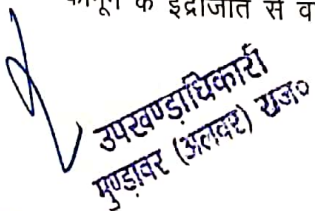 कानून के इंद्राजात से व
उपखण्डाधिकारी
मुण्डावर (अलवर) राज०